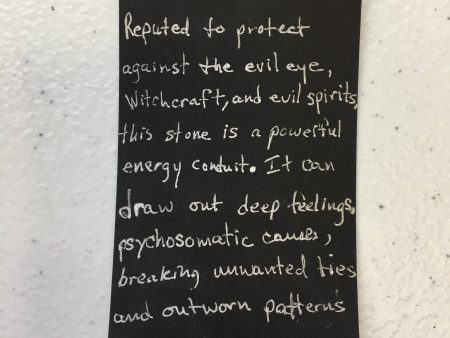 Reputed to protect
against the evil eye,
witchcraft, and evil spirits,
this stone is a powerful
energy conduit. It can
draw out deep feelings,
psychosomatic causes,
breaking unwanted ties
and outworn patterns